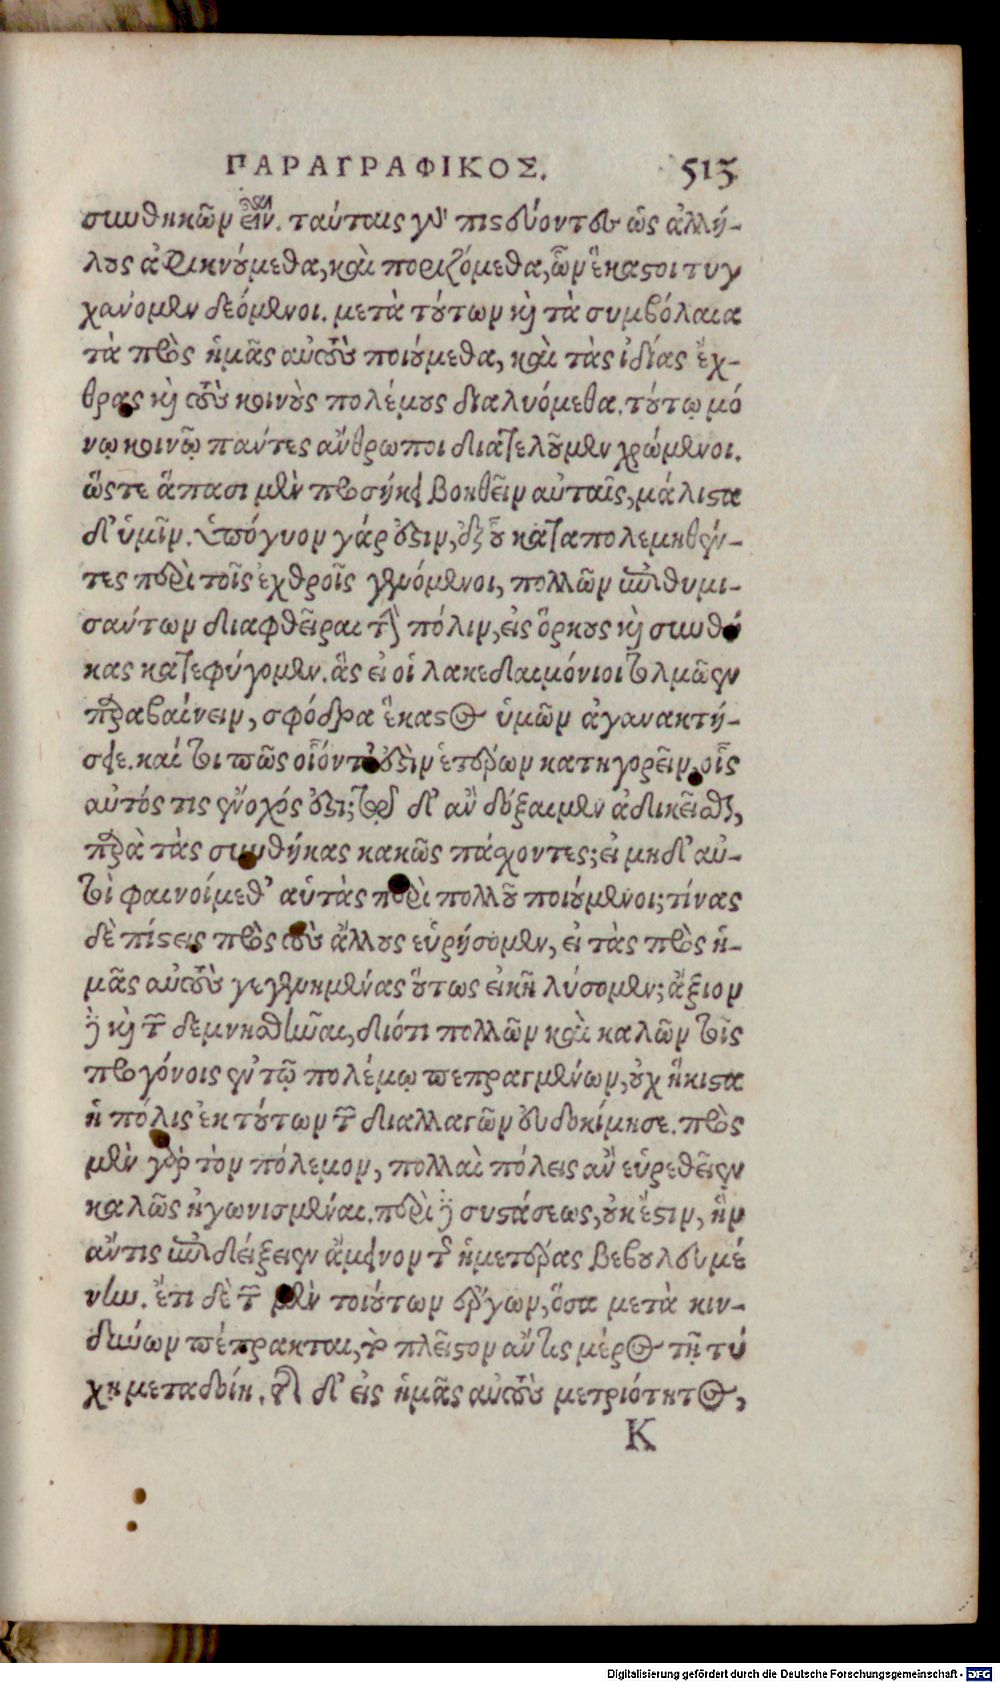 ΠΑΡΑΓΡΑΦΙΚΟΣ. 513
συνθηκῶν εἶναι. ταύταις γὰρ πιστεύοντες ὡς ἀλλή-
λους ἀφικνούμεθα, καὶ ποριζόμεθα, ὧν ἕκαστοι τυγ
χάνομεν δεόμενοι. μετὰ τούτων καὶ τὰ συμβόλαια
τὰ πρὸς ἡμᾶς αὐτοὺς ποιούμεθα, καὶ τὰς ἰδίας ἔχ-
θρας καὶ τοὺς κοινοὺς πολέμους διαλυόμεθα. τούτῳ μό
νῳ κοινῷ πάντες ἄνθρωποι διατελοῦμεν χρώμενοι.
ὥστε ἅπασι μὲν προσήκει βοηθεῖν αὐταῖς, μάλιστα
δ' ὑμῖν. ὑπόγυον γάρ ἐστιν, ἐξ οὗ καταπολεμηθέν-
τες ἐπὶ τοῖς ἐχθροῖς γενόμενοι, πολλῶν ἐπιθυμη-
σάντων διαφθεῖραι τὴν πόλιν, εἰς ὅρκους καὶ συνθή
κας κατεφύγομεν. ἃς εἰ οἱ λακεδαιμόνιοι τολμῷεν
παραβαίνειν, σφόδρα ἕκαστος ὑμῶν ἀγανακτή-
σειε. καί τοι πῶς οἷόντ' ἐστὶν ἑτέρων κατηγορεῖν, οἷς
αὐτός τις ἔνοχός ἐστι; τῷ δ' ἂν δόξαιμεν ἀδικεῖσθαι,
παρὰ τὰς συνθήκας κακῶς πάσχοντες; εἰ μηδ' αὐ-
τοὶ φαινοίμεθ' αὐτὰς περὶ πολλοῦ ποιούμενοι; τίνας
δὲ πίστεις πρὸς τοὺς ἄλλους εὑρήσομεν, εἰ τὰς πρὸς ἡ-
μᾶς αὐτοὺς γεγενημένας οὕτως εἰκῆ λύσομεν; ἄξιον
δὲ καὶ τῶν δε μνησθῆναι, διότι πολλῶν καὶ καλῶν τοῖς
προγόνοις ἐν τῷ πολέμῳ πεπραγμένων, οὐχ ἥκιστα
ἡ πόλις ἐκ τούτων τῶν διαλλαγῶν εὐδοκίμησε. πρὸς
μὲν γὰρ τὸν πόλεμον, πολλαὶ πόλεις ἂν εὑρεθεῖεν
καλῶς ἠγωνισμέναι. περὶ δὲ συστάσεως, οὐκ ἔστιν, ἣν
ἄν τις ἐπιδείξειεν ἄμεινον τῆς ἡμετέρας βεβουλευμέ
νην. ἔτι δὲ τῶν μὲν τοιούτων ἔργων, ὅσα μετὰ κιν-
δύνων πέπρακται, τὸ πλεῖστον ἄν τις μέρος τῇ τύ
χῃ μεταδοίη. τῆς δ' εἰς ἡμᾶς αὐτοὺς μετριότητος,
K
Digitalisierung gefördert durch die Deutsche Forschungsgemeinschaft - DFG